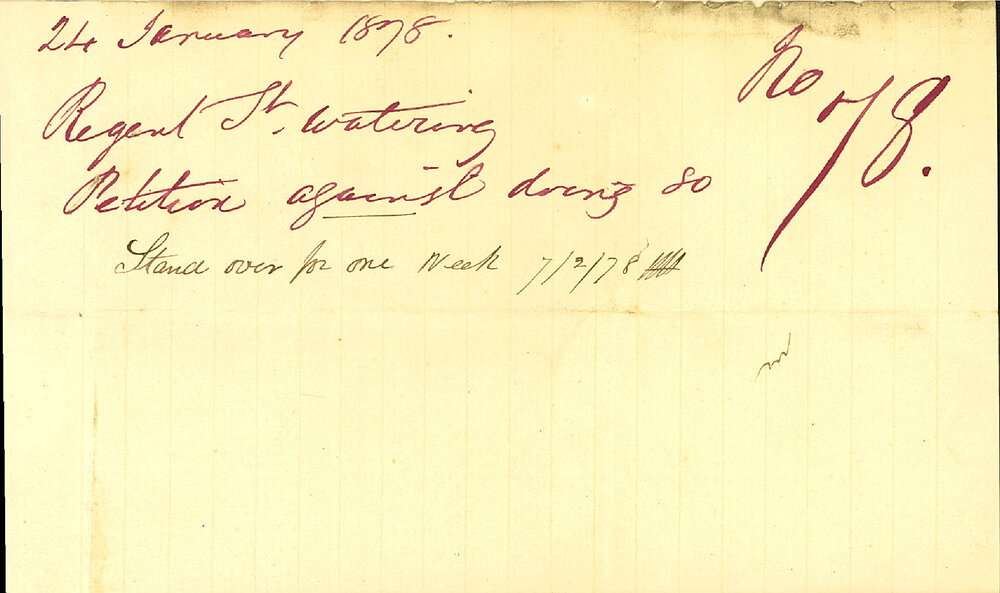 24 January 1878.
No 78.
Regent St. watering
Petition against doing so
Stand over for one Week 7/2/78